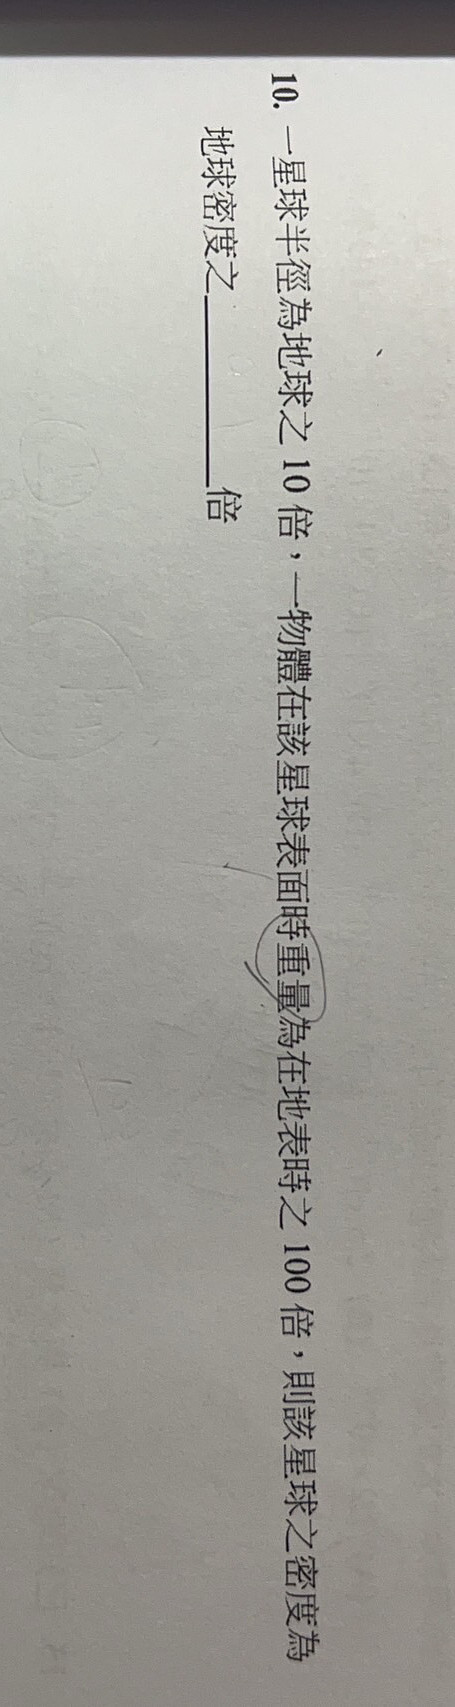 10. 一星球半徑為地球之 10 倍，一物體在該星球表面時重量為在地表時之 100 倍，則該星球之密度為
地球密度之＿＿＿＿＿倍